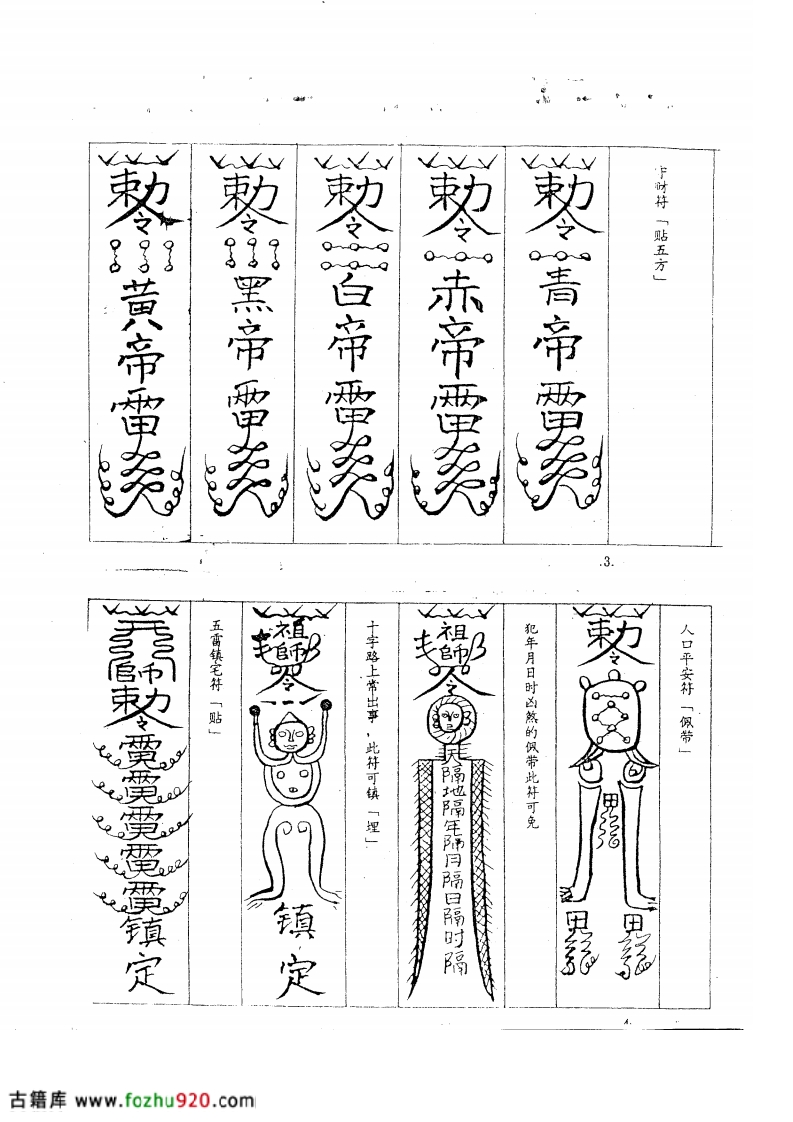 财符「贴五方」
勅令
青帝雷
勅令
赤帝雷
勅令
白帝雷
勅令
黑帝雷
勅令
黄帝雷
.3.
人口平安符「佩带」
勅令
犯年月日时凶煞的佩带此符可免
祖師
令
天隔地隔年隔月隔日隔时隔
十字路上常出事，此符可镇「埋」
祖師
令
镇定
五雷镇宅符「贴」
師
勅令
镇定
4.
古籍库 www.fozhu920.com